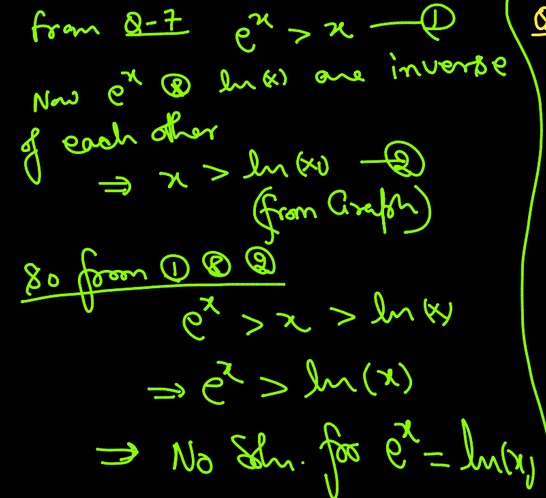 from Q-7 e^x > x — ①
Now e^x & ln(x) are inverse
of each other
⇒ x > ln(x) — ②
(from Graph)
So from ① & ②
e^x > x > ln(x)
⇒ e^x > ln(x)
⇒ No Soln. for e^x = ln(x)